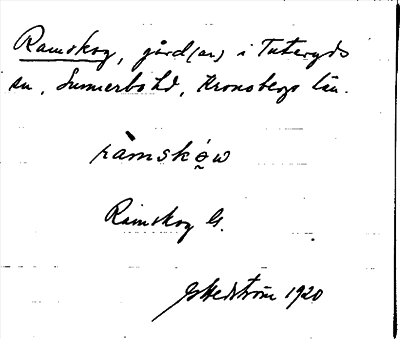 Ramskog, gård(ar) i Tutaryds
sn, Sunnerbo hd, Kronobergs län.
ràmskó̰w
Ramskog G.
G Hedström 1920